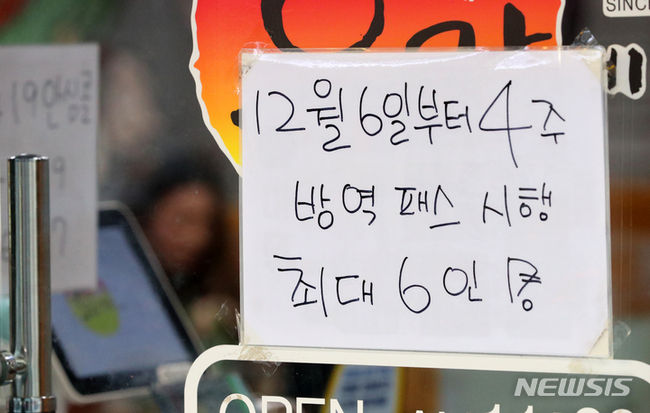 SINCE
19 안심콜
12월 6일부터 4주
방역 패스 시행
최대 6인
NEWSIS
OPEN